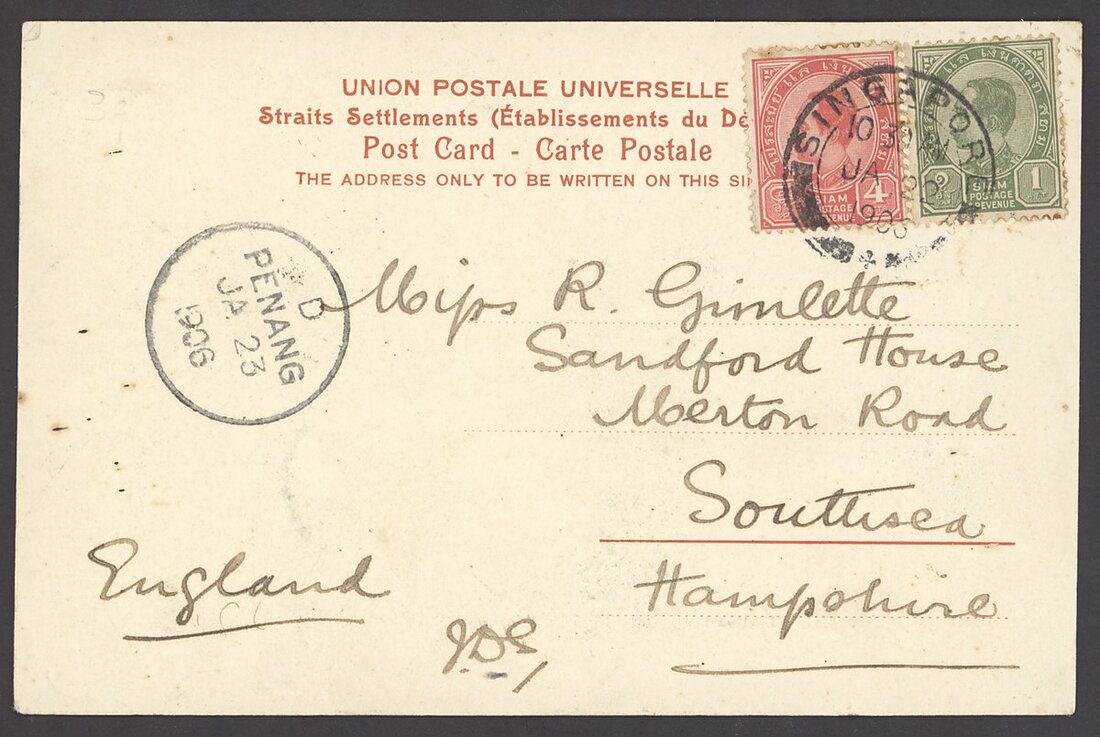 UNION POSTALE UNIVERSELLE
Straits Settlements (Établissements du Dé
Post Card - Carte Postale
THE ADDRESS ONLY TO BE WRITTEN ON THIS SI
SIAM
POSTAGE
REVENUE
4
SIAM
POSTAGE
REVENUE
1
SINGAPORE
10 30 AM
JA
1906
D
PENANG
JA 23
1906
Miss R. Gimlette
Sandford House
Merton Road
Southsea
Hampshire
England
J.D.G,